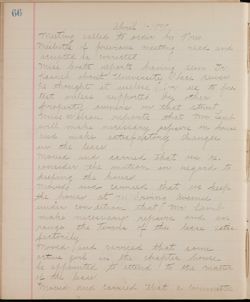 66
April
Meeting called to order by Pres.
Minutes of previous meeting read and
accepted as corrected.
Miss reports having seen Dr.
about University Place
He thought it useless for us to
unless supported by other
property owners on that street.
Miss reports that Mr. Lamb
will make necessary repairs on house
and make satisfactory changes
in the lease.
Moved and carried that we re-
consider the motion in regard to
keeping the house.
Moved and carried that we keep
the house at Irving Avenue
under condition that Mr. Lamb
make necessary repairs and ar-
range the terms of the lease satis-
factorily.
Moved and carried that some
active girl in the chapter house
be appointed to attend to the matter
of the lease.
Moved and carried that a committee